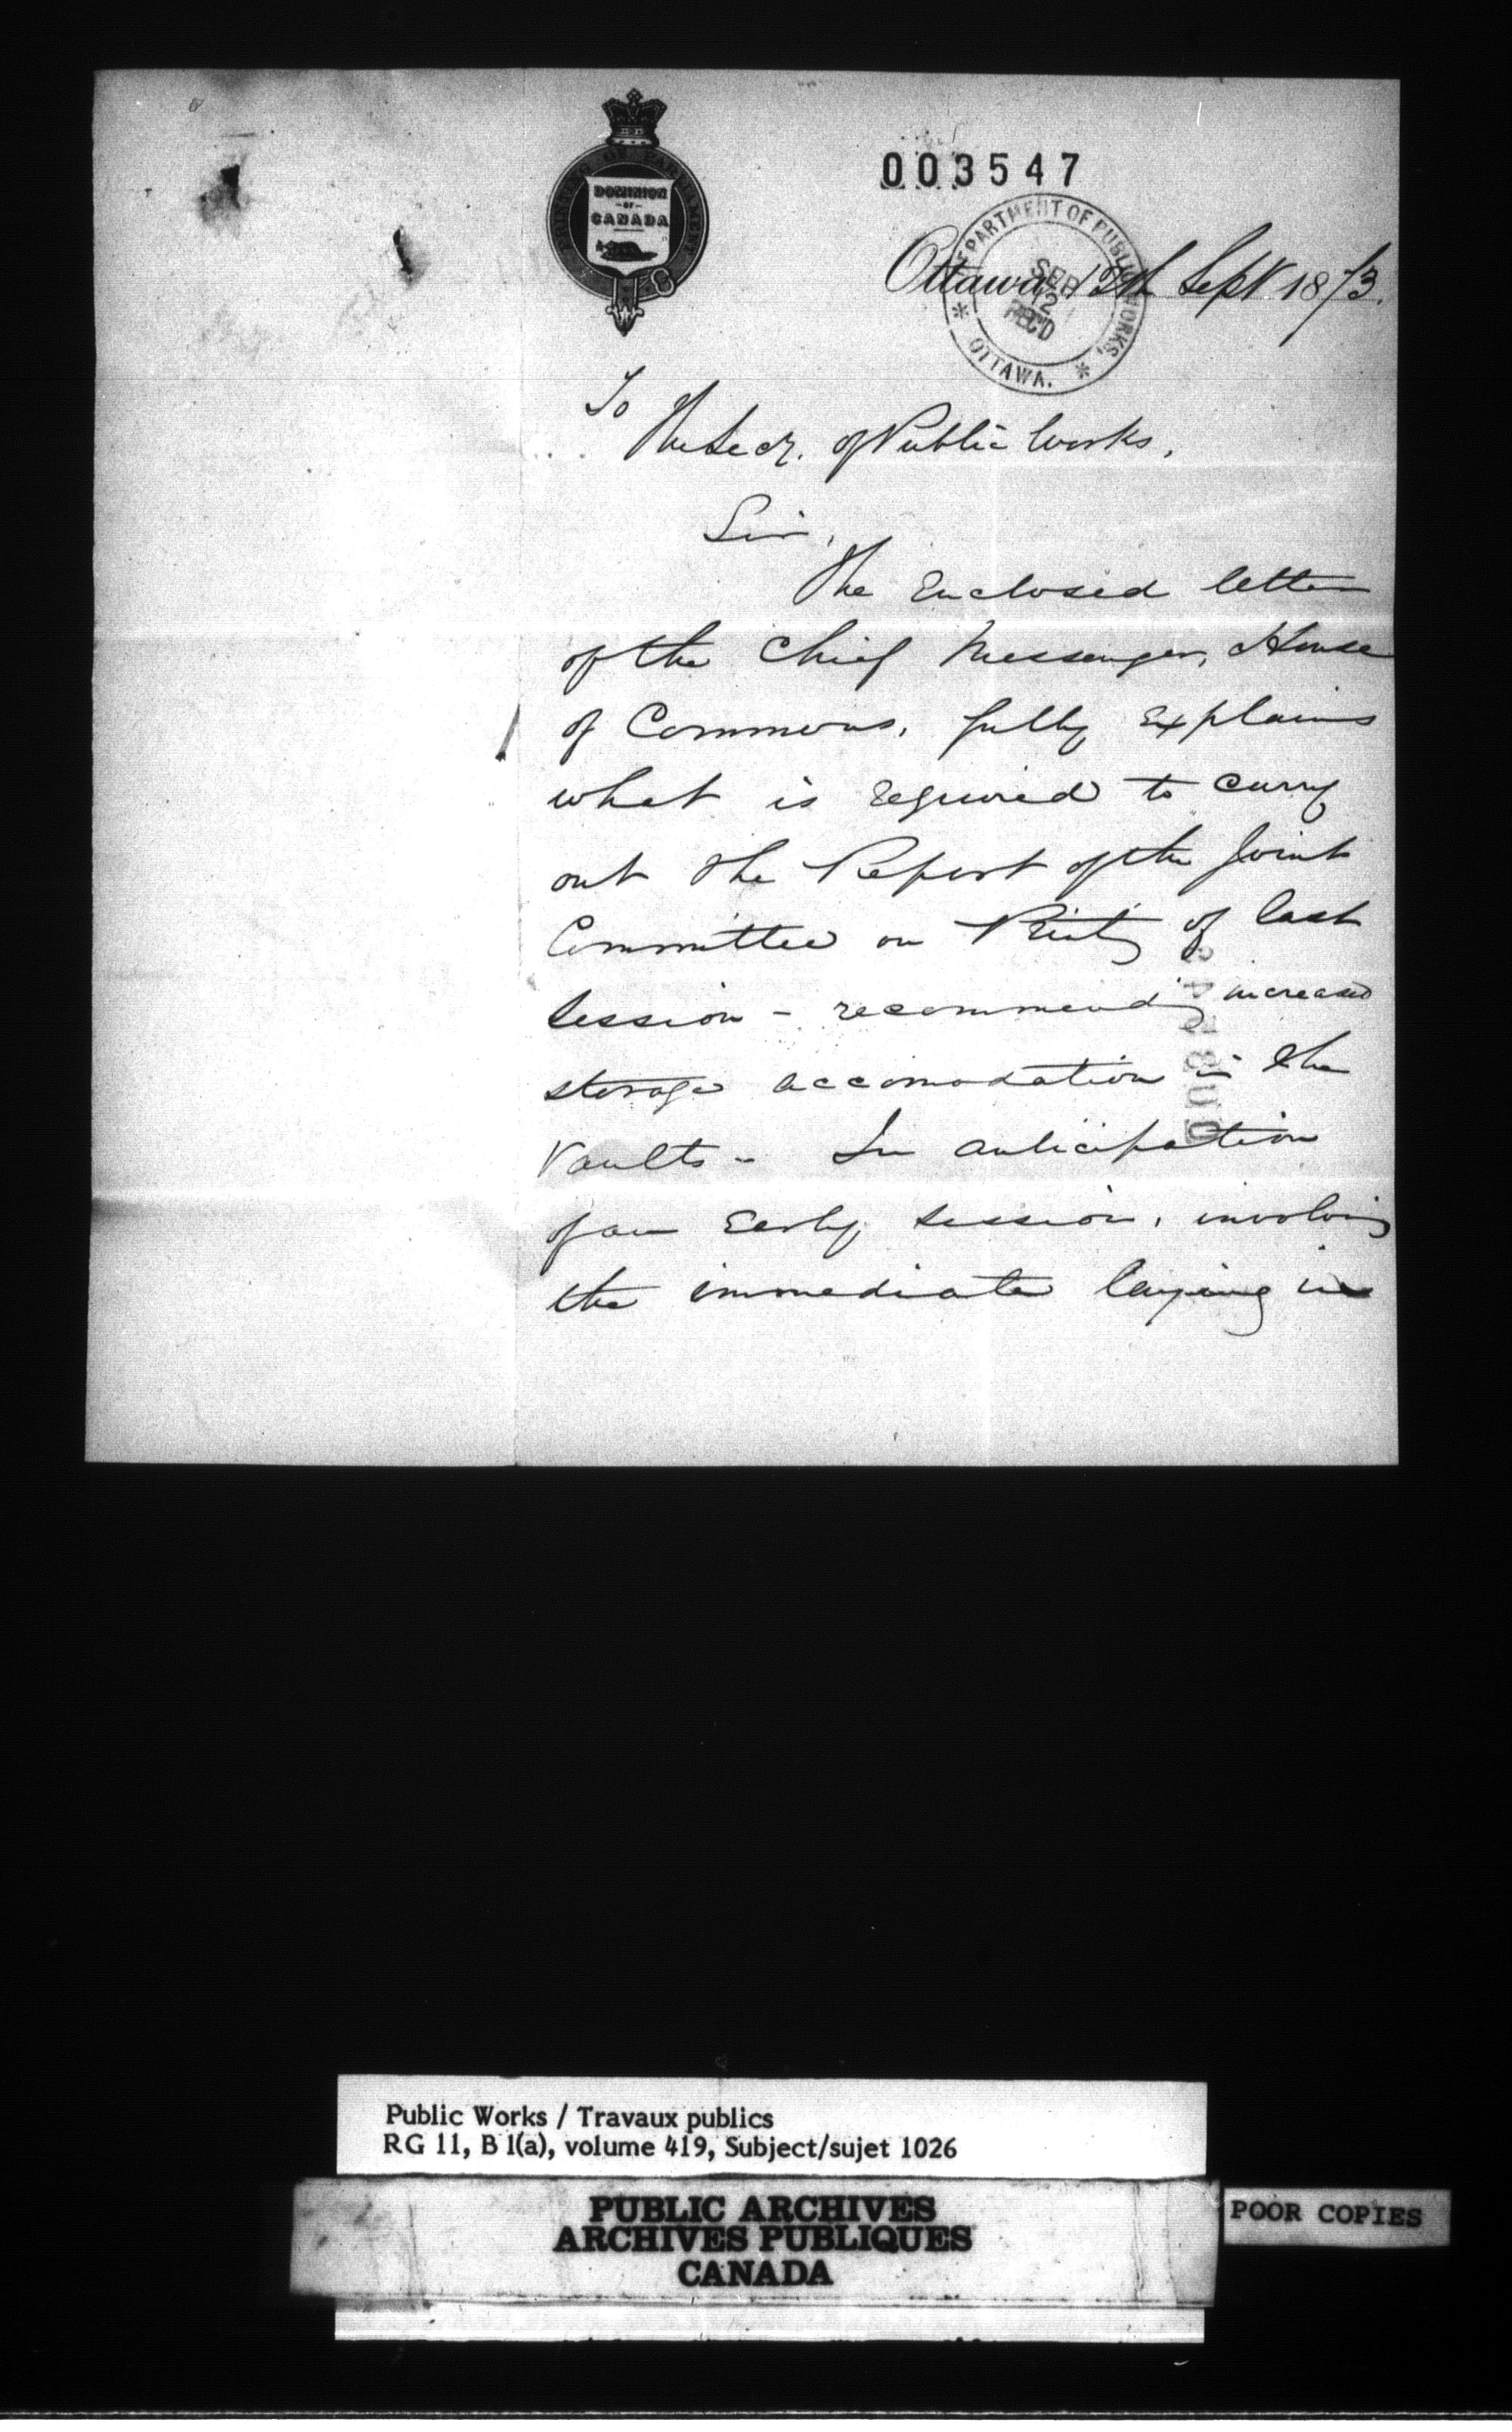 PRINTING OF PARLIAMENT
DOMINION
-OF-
CANADA
003547
DEPARTMENT OF PUBLIC WORKS,
SEP
12
REC'D
* OTTAWA. *
Ottawa, 12th Sept 1873.
To
The Secy. of Public Works,
Sir,
The Enclosed letter
of the Chief Messenger, House
of Commons, fully Explains
what is required to carry
out the Report of the Joint
Committee on Printg of last
Session - recommendg increased
storage accomodation in the
Vaults - In anticipation
of an Early Session, involving
the immediate laying in
Public Works / Travaux publics
RG 11, B 1(a), volume 419, Subject/sujet 1026
PUBLIC ARCHIVES
ARCHIVES PUBLIQUES
CANADA
POOR COPIES